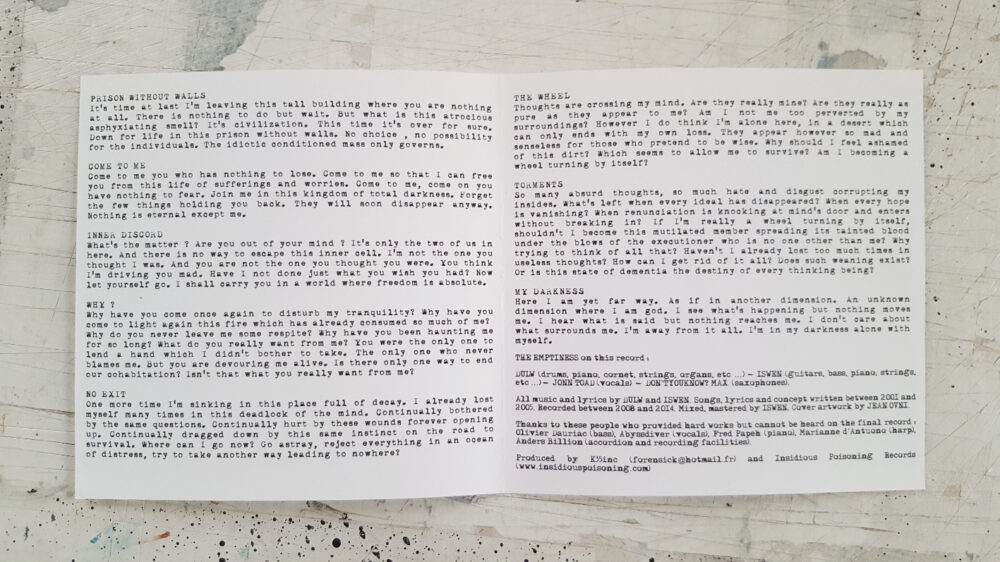 PRISON WITHOUT WALLS
It's time at last I'm leaving this tall building where you are nothing
at all. There is nothing to do but wait. But what is this atrocious
asphyxiating smell? It's civilization. This time it's over for sure.
Down for life in this prison without walls. No choice , no possibility
for the individuals. The idiotic conditioned mass only governs.
COME TO ME
Come to me you who has nothing to lose. Come to me so that I can free
you from this life of sufferings and worries. Come to me, come on you
have nothing to fear. Join me in this kingdom of total darkness. Forget
the few things holding you back. They will soon disappear anyway.
Nothing is eternal except me.
INNER DISCORD
What's the matter ? Are you out of your mind ? It's only the two of us in
here. And there is no way to escape this inner cell. I'm not the one you
thought I was. And you are not the one you thought you were. You think
I'm driving you mad. Have I not done just what you wish you had? Now
let yourself go. I shall carry you in a world where freedom is absolute.
WHY ?
Why have you come once again to disturb my tranquility? Why have you
come to light again this fire which has already consumed so much of me?
Why do you never leave me some respite? Why have you been haunting me
for so long? What do you really want from me? You were the only one to
lend a hand which I didn't bother to take. The only one who never
blames me. But you are devouring me alive. Is there only one way to end
our cohabitation? Isn't that what you really want from me?
NO EXIT
One more time I'm sinking in this place full of decay. I already lost
myself many times in this deadlock of the mind. Continually bothered
by the same questions. Continually hurt by these wounds forever opening
up. Continually dragged down by this same instinct on the road to
survival. Where can I go now? Go astray, reject everything in an ocean
of distress, try to take another way leading to nowhere?
THE WHEEL
Thoughts are crossing my mind. Are they really mine? Are they really as
pure as they appear to me? Am I not me too perverted by my
surroundings? However I do think I'm alone here, in a desert which
can only ends with my own loss. They appear however so mad and
senseless for those who pretend to be wise. Why should I feel ashamed
of this dirt? Which seems to allow me to survive? Am I becoming a
wheel turning by itself?
TORMENTS
So many absurd thoughts, so much hate and disgust corrupting my
insides. What's left when every ideal has disappeared? When every hope
is vanishing? When renunciation is knocking at mind's door and enters
without breaking in? If I'm really a wheel turning by itself,
shouldn't I become this mutilated member spreading its tainted blood
under the blows of the executioner who is no one other than me? Why
trying to think of all that? Haven't I already lost too much times in
useless thoughts? How can I get rid of it all? Does such weaning exist?
Or is this state of dementia the destiny of every thinking being?
MY DARKNESS
Here I am yet far way. As if in another dimension. An unknown
dimension where I am god. I see what's happening but nothing moves
me. I hear what is said but nothing reaches me. I don't care about
what surrounds me. I'm away from it all. I'm in my darkness alone with
myself.
THE EMPTINESS on this record :
DULW (drums, piano, cornet, strings, organs, etc ...) – ISWEN (guitars, bass, piano, strings,
etc ...) – JONN TOAD (vocals) – DON'TYOUKNOW? MAX (saxophones).
All music and lyrics by DULW and ISWEN. Songs, lyrics and concept written between 2001 and
2005. Recorded between 2008 and 2014. Mixed, mastered by ISWEN. Cover artwork by JEAN OVNI.
Thanks to these people who provided hard works but cannot be heard on the final record :
Olivier Dauriac (bass), Abyssdiver (vocals), Fred Papeh (piano), Marianne d'Antuono (harp),
Anders Billion (accordion and recording facilities).
Produced by K35inc (forensick@hotmail.fr) and Insidious Poisoning Records
(www.insidiouspoisoning.com)